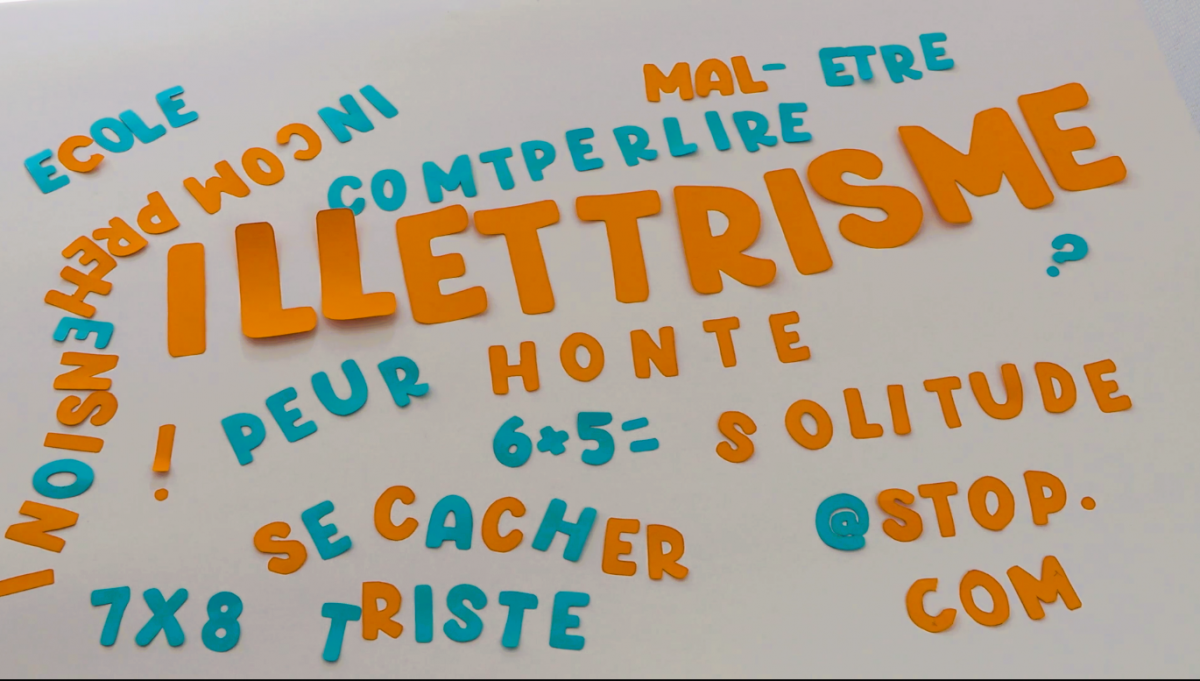 ECOLE
INCOMPREHENSION
MAL- ETRE
COMTPERLIRE
ILLETTRISME
?
!
PEUR
HONTE
6+5=
SOLITUDE
SE CACHER
@STOP.
COM
7X8
TRISTE